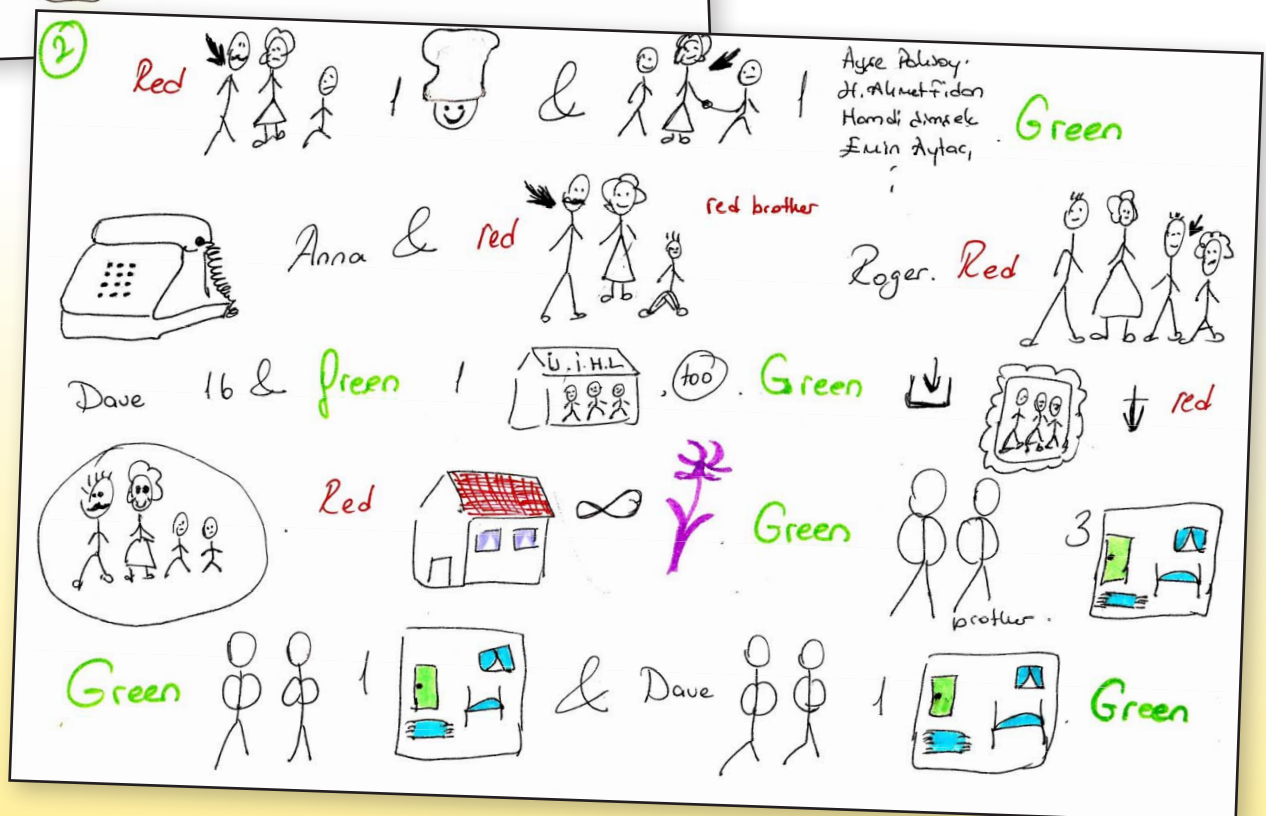 2
Red 1 & 1 Green
Ayşe
H. Ahmet Fidan
Hamdi Şimşek
Emin Aytaç,
Anna & red red brother Roger. Red
Dave 16 & green 1 Ü.İ.H.L , too . Green red
. Red . Green 3
brother .
Green 1 & Dave 1 . Green